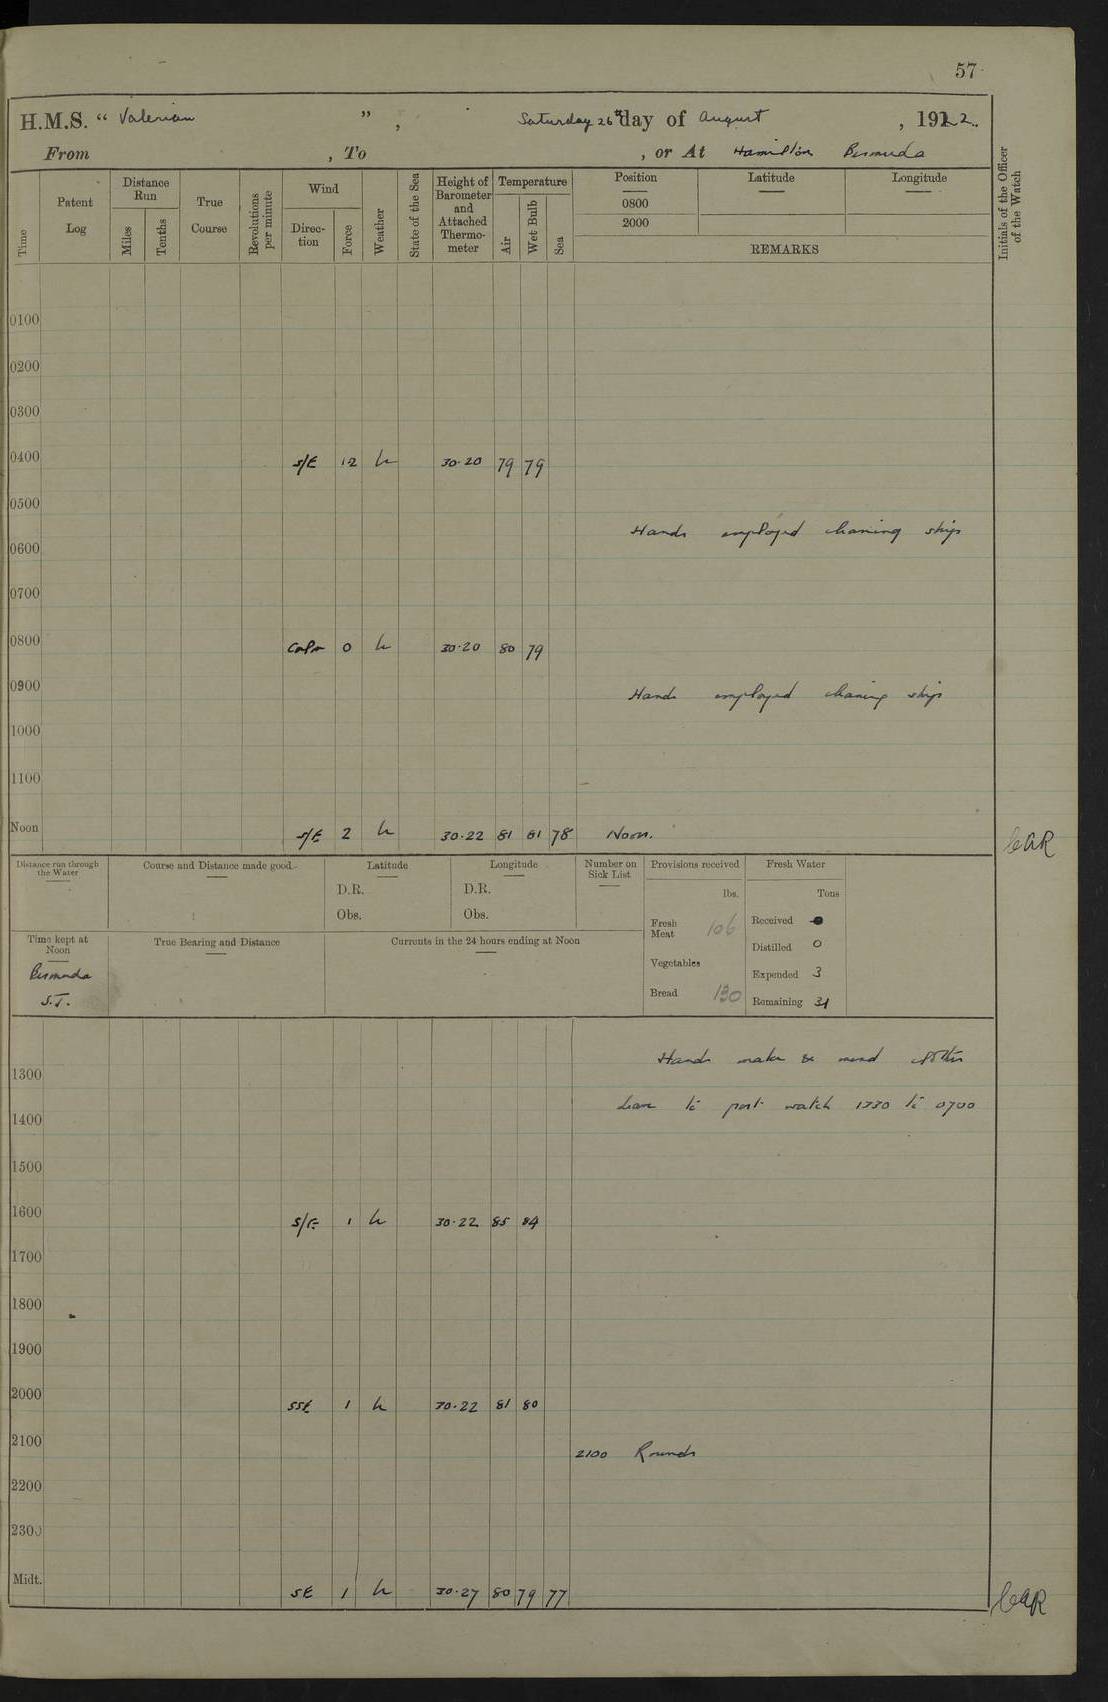 57
H.M.S. “ Valerian ” , Saturday 26th day of August , 1922.
From , To , or At Hamilton Bermuda
Time Patent Log Distance Run Miles Tenths True Course Revolutions per minute Wind Direc-tion Force Weather State of the Sea Height of Barometer and Attached Thermo-meter Temperature Air Wet Bulb Sea Position Latitude Longitude Initials of the Officer of the Watch
0800
2000
REMARKS
0100
0200
0300
0400 S/E 1-2 b 30·20 79 79
0500
Hands employed cleaning ship
0600
0700
0800 Calm 0 b 30·20 80 79
0900 Hands employed cleaning ship
1000
1100
Noon S/E 2 b 30·22 81 81 78 Noon.
Distance run through the Water Course and Distance made good Latitude Longitude Number on Sick List Provisions received Fresh Water
D.R. D.R. lbs. Tons
Obs. Obs. Fresh Meat 106 Received 0
Time kept at Noon True Bearing and Distance Currents in the 24 hours ending at Noon Distilled 0
Bermuda Vegetables Expended 3
S.T. Bread 130 Remaining 31
Hands make & mend clothes
1300
Leave to port watch 1330 to 0700
1400
1500
1600 S/E 1 b 30·22 85 84
1700
1800
1900
2000 SSE 1 b 30·22 81 80
2100 2100 Rounds
2200
2300
Midt. SE 1 b 30·27 80 79 77